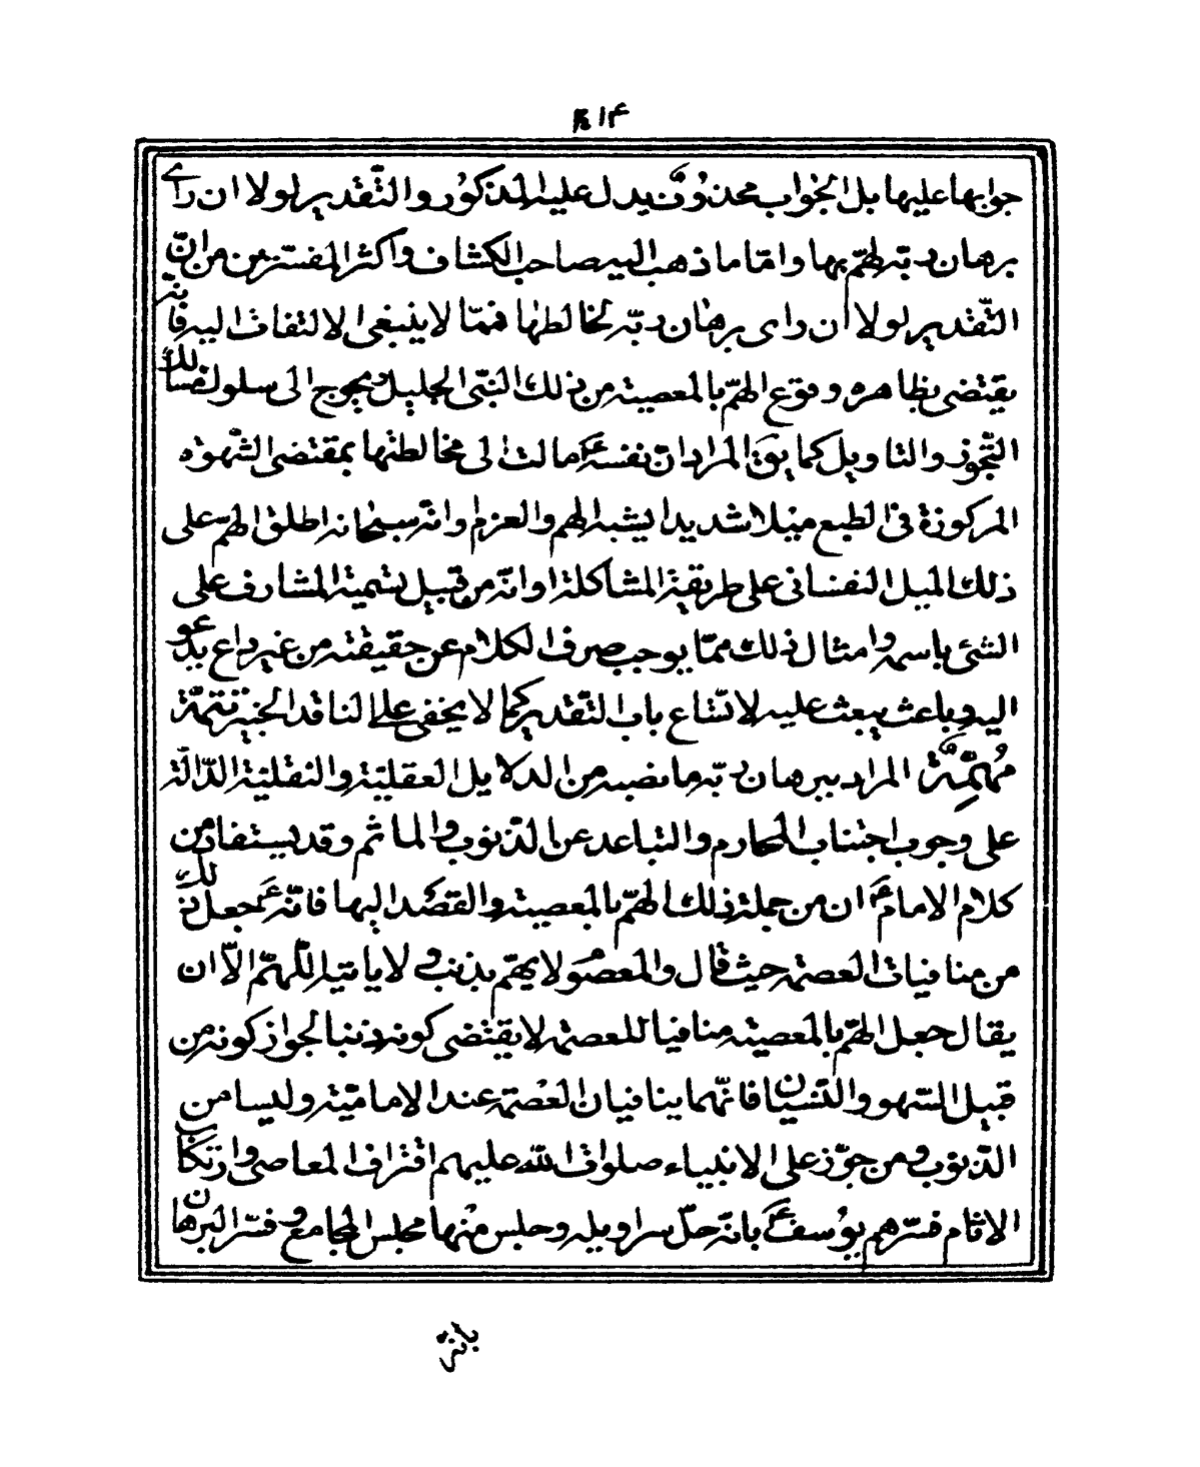 ۱۴
جوابها عليها بل الجواب محذوف يدل عليه المذكور والتقدير لولا ان راى
برهان ربّه لهمّ بها وامّا ما ذهب اليه صاحب الكشاف واكثر المفسّرين من انّ
التّقدير لولا ان راى برهان ربّه لخالطها فممّا لا ينبغى الالتفات اليه فانّه
يقتضى بظاهره وقوع الهمّ بالمعصية من ذلك النبىّ الجليل ويحوج الى سلوك مسالك
التّجوز والتاويل كما يق المراد انّ نفسه ع مالت الى مخالطتها بمقتضى الشّهوة
المركوزة فى الطبع ميلا شديدا يشبه الهم والعزم وانّه سبحانه اطلق الهمّ على
ذلك الميل النفسانى على طريقة المشاكلة او انّه من قبيل تسمية المشارف على
الشئ باسمه وامثال ذلك ممّا يوجب صرف الكلام عن حقيقته من غير داع يدعو
اليه وباعث يبعث عليه لاتّساع باب التّقدير كما لا يخفى على الناقد الخبير تتمّة
مُهِمَّةٌ المراد ببرهان ربّه ما نصبه من الدلايل العقليّة والنقليّة الدّالّة
على وجوب اجتناب المحارم والتباعد عن الذّنوب والماثم وقد يستفاد من
كلام الامام ع ان من جملة ذلك الهمّ بالمعصية والقصد اليها فانّه ع جعل ذلك
من منافيات العصمة حيث قال والمعصوم لا يهمّ بذنب ولا ياتيه اللّهمّ الاّ ان
يقال جعل الهمّ بالمعصية منافيا للعصمة لا يقتضى كونه ذنبا لجواز كونه من
قبيل السّهو والنّسيان فانّهما ينافيان العصمة عند الاماميّة وليسا من
الذّنوب ومن جوّز على الانبياء صلوات الله عليهم اقتراف المعاصى وارتكاب
الاثام فسّر همّ يوسف ع بانّه حلّ سراويله وجلس منها مجلس المجامع وفسّر البرهان
بانّه